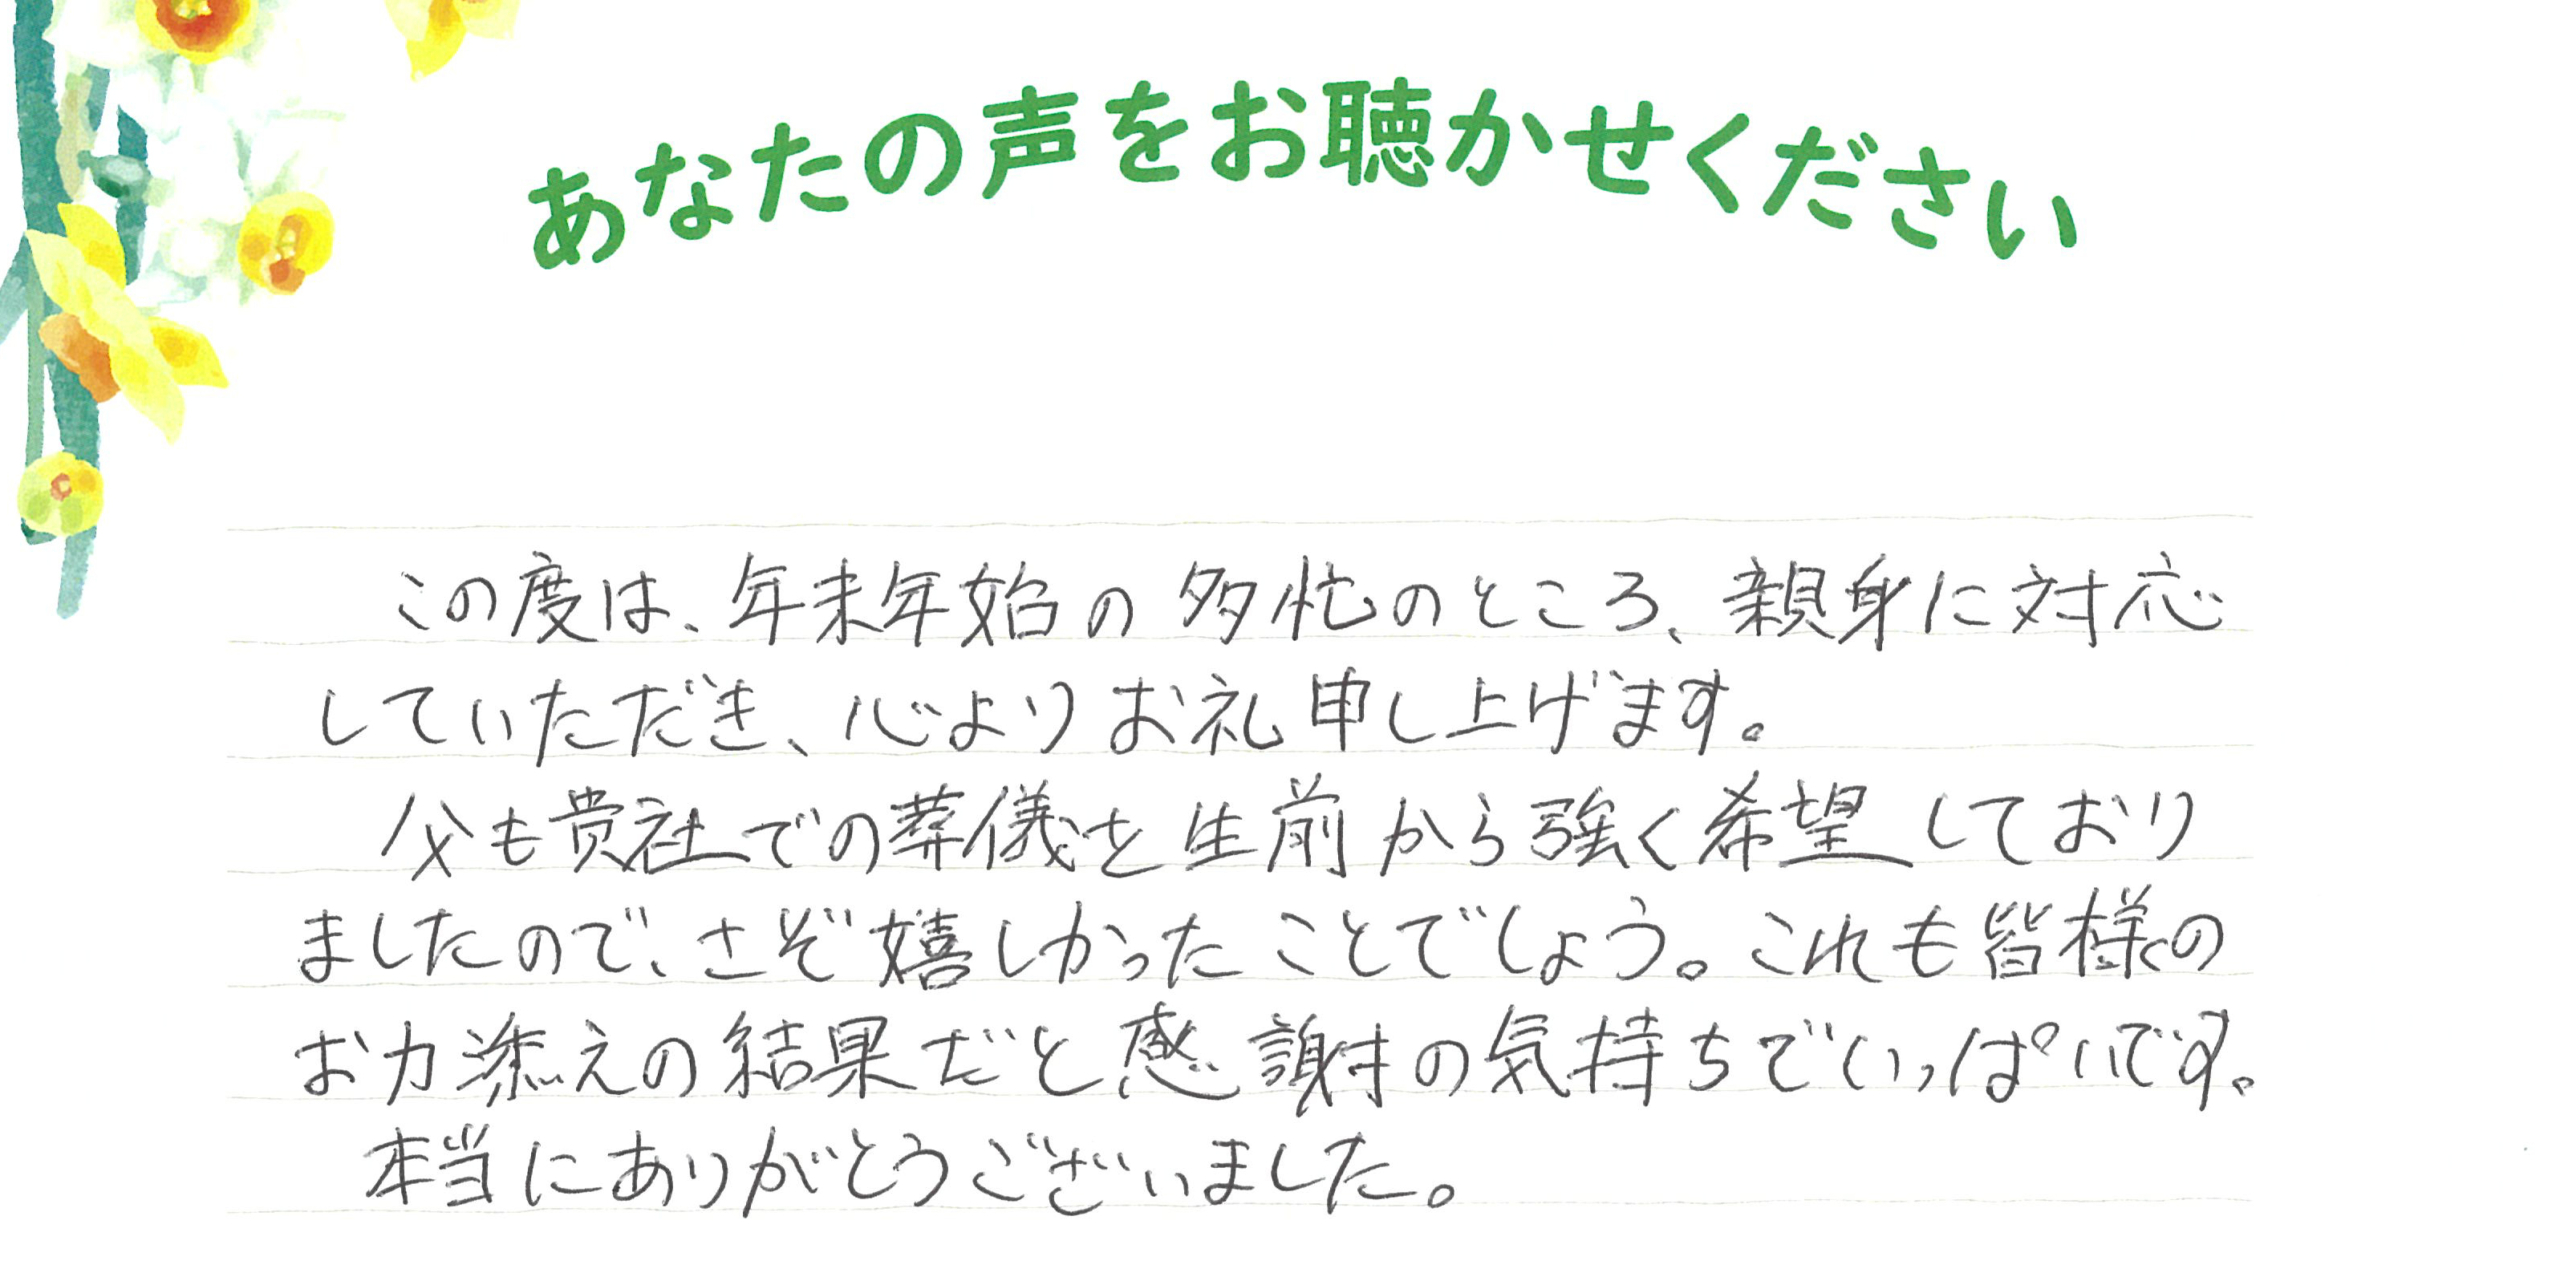 あなたの声をお聴かせください
この度は、年末年始の多忙のところ、親身に対応
していただき、心よりお礼申し上げます。
父も貴社での葬儀を生前から強く希望しており
ましたので、さぞ嬉しかったことでしょう。これも皆様の
お力添えの結果だと感謝の気持ちでいっぱいです。
本当にありがとうございました。